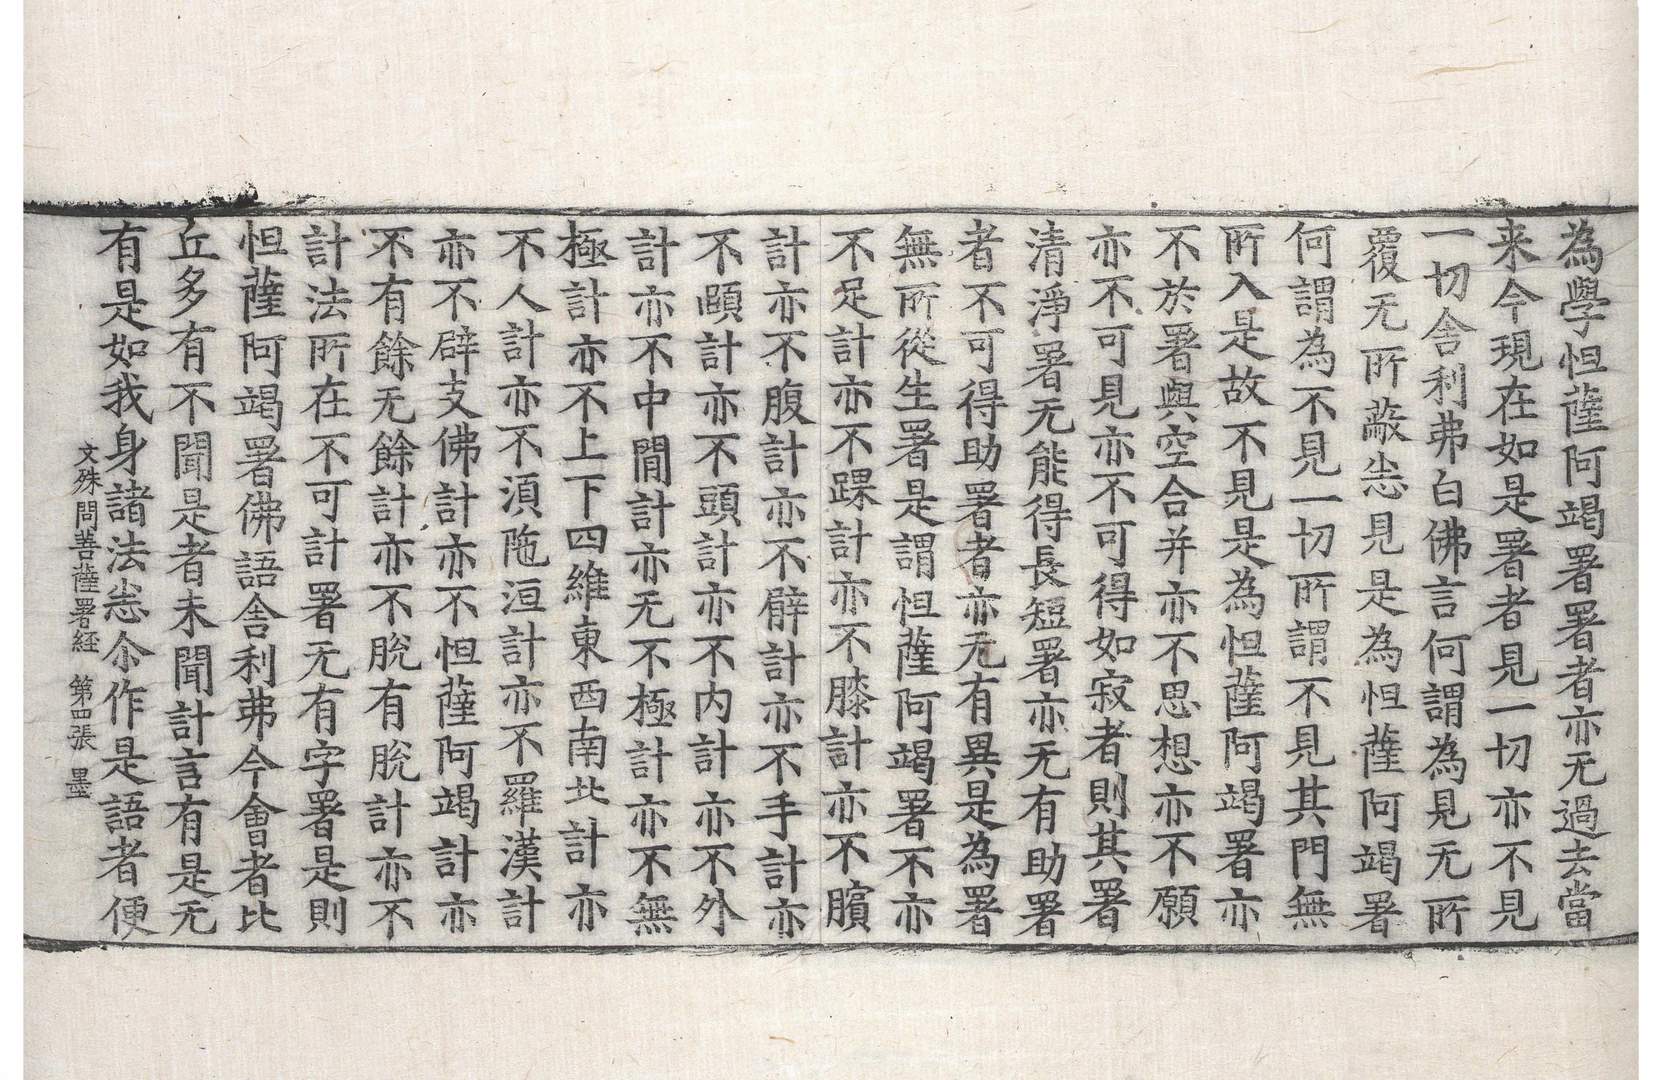 為學怛薩阿竭署署者亦无過去當
来今現在如是署者見一切亦不見
一切舍利弗白佛言何謂為見无所
覆无所蔽悉見是為怛薩阿竭署
何謂為不見一切所謂不見其門無
所入是故不見是為怛薩阿竭署亦
不於署與空合并亦不思想亦不願
亦不可見亦不可得如寂者則其署
清淨署无能得長短署亦无有助署
者不可得助署者亦无有異是為署
無所從生署是謂怛薩阿竭署不亦
不足計亦不踝計亦不膝計亦不髕
計亦不腹計亦不臂計亦不手計亦
不頤計亦不頭計亦不内計亦不外
計亦不中閒計亦无不極計亦不無
極計亦不上下四維東西南北計亦
不人計亦不湏陁洹計亦不羅漢計
亦不辟支佛計亦不怛薩阿竭計亦
不有餘无餘計亦不脫有脫計亦不
計法所在不可計署无有字署是則
怛薩阿竭署佛語舍利弗今會者比
丘多有不聞是者未聞計言有是无
有是如我身諸法悉尒作是語者便
文殊問菩薩署経 第四張 墨